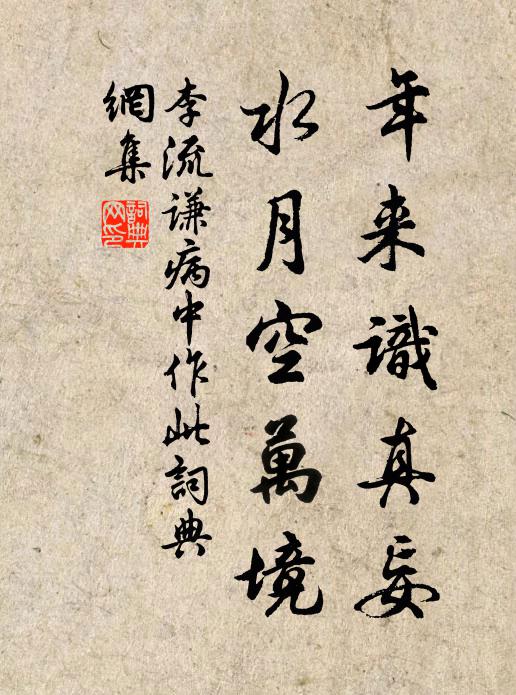 年来識真妄
水月空萬境
李流謙病中作此詞典
網集
詞典網印